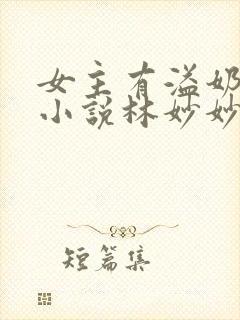 女主有溢奶
小说林妙妙
短篇集